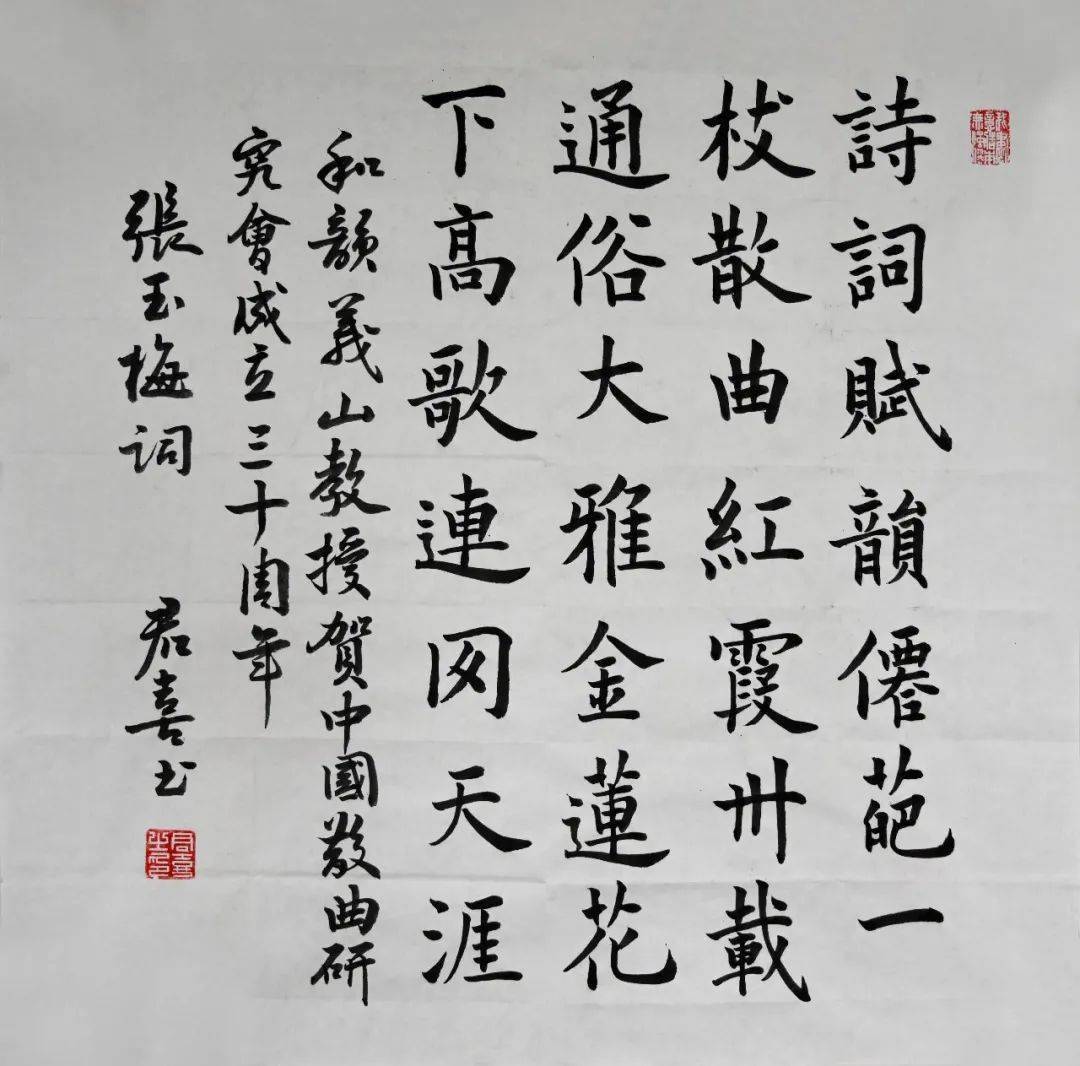 詩詞賦韻僊葩一
枝散曲紅霞卅載
通俗大雅金蓮花
下高歌連网天涯
和韻義山教授賀中國散曲研
究會成立三十周年
張玉梅词 君喜书
君喜之印